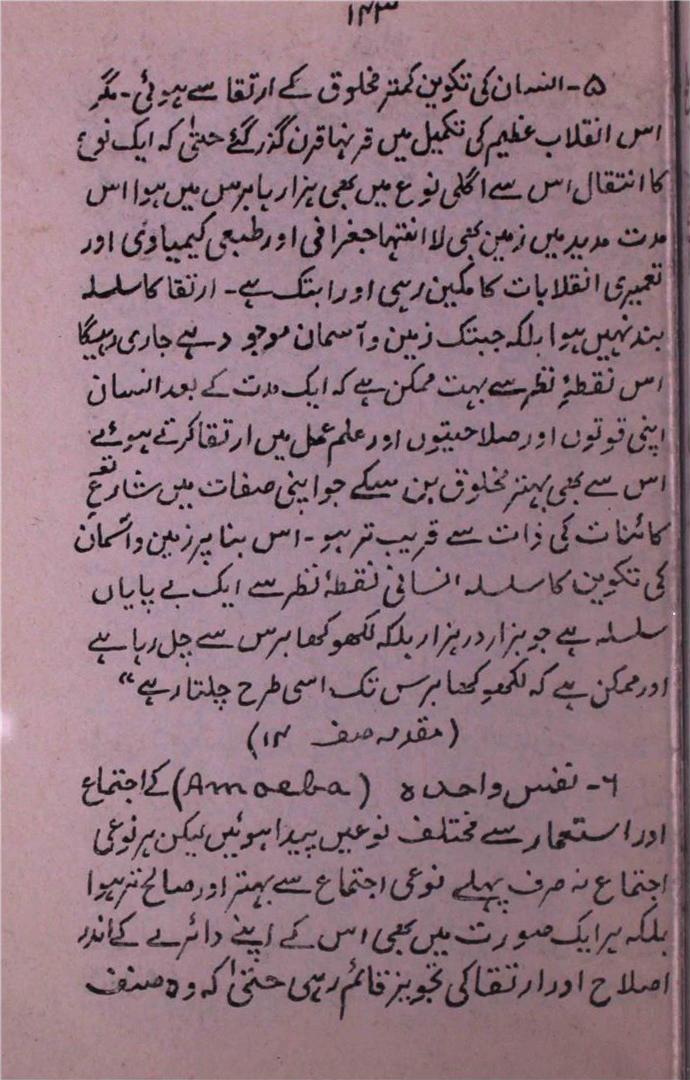 ۱۴۳
۵۔ انسان کی تکوین کمتر مخلوق کے ارتقا سے ہوئی۔ مگر
اس انقلاب عظیم کی تکمیل میں قرنہا قرن گذر گئے حتیٰ کہ ایک نوع
کا انتقال اس سے اگلی نوع میں بھی ہزارہا برس میں ہوا اس
مدت مدید میں زمین بھی لا انتہا جغرافی اور طبعی کیمیاوی اور
تعمیری انقلابات کا مکین رہی اور ابتک ہے۔ ارتقا کا سلسلہ
بند نہیں ہوا بلکہ جبتک زمین و آسمان موجود ہے جاری رہیگا
اس نقطۂ نظر سے بہت ممکن ہے کہ ایک مدت کے بعد انسان
اپنی قوتوں اور صلاحیتوں اور علم عمل میں ارتقا کرتے ہوئے
اس سے بھی بہتر مخلوق بن سکے جو اپنی صفات میں شارع
کائنات کی ذات سے قریب تر ہو۔ اس بنا پر زمین و آسمان
کی تکوین کا سلسلہ انسانی نقطۂ نظر سے ایک بے پایاں
سلسلہ ہے جو ہزار در ہزار بلکہ لکھوکھا برس سے چل رہا ہے
اور ممکن ہے کہ لکھوکھا برس تک اسی طرح چلتا رہے“
(مقدمہ صف ۱۴)
۶۔ نفس واحدہ (Amoeba) کے اجتماع
اور استعمار سے مختلف نوعیں پیدا ہوئیں لیکن ہر نوعی
اجتماع نہ صرف پہلے نوعی اجتماع سے بہتر اور صالح تر ہوا
بلکہ ہر ایک صورت میں بھی اس کے اپنے دائرے کے اندر
اصلاح اور ارتقا کی تجویز قائم رہی حتیٰ کہ وہ صنف